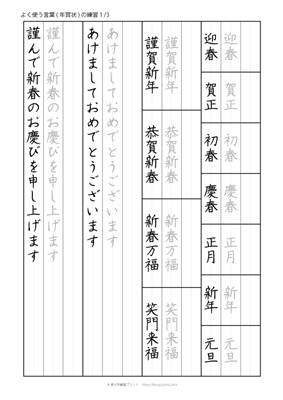 よく使う言葉(年賀状)の練習1/3
迎春
迎春
賀正
賀正
初春
初春
慶春
慶春
正月
正月
新年
新年
元旦
元旦
謹賀新年
謹賀新年
恭賀新春
恭賀新春
新春万福
新春万福
笑門来福
笑門来福
あけましておめでとうございます
あけましておめでとうございます
謹んで新春のお慶びを申し上げます
謹んで新春のお慶びを申し上げます